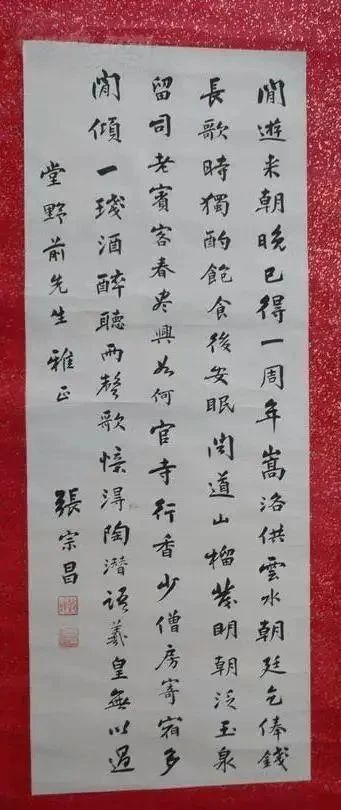 閒遊来朝晚已得一周年嵩洛供雲水朝廷乞俸錢
長歌時獨酌飽食後安眠聞道山榴發明朝泛玉泉
留司老賓客春盡興如何官寺行香少僧房寄宿多
閒傾一琖酒醉聽兩聲歌憶得陶潛語羲皇無以過
堂野前先生雅正
張宗昌